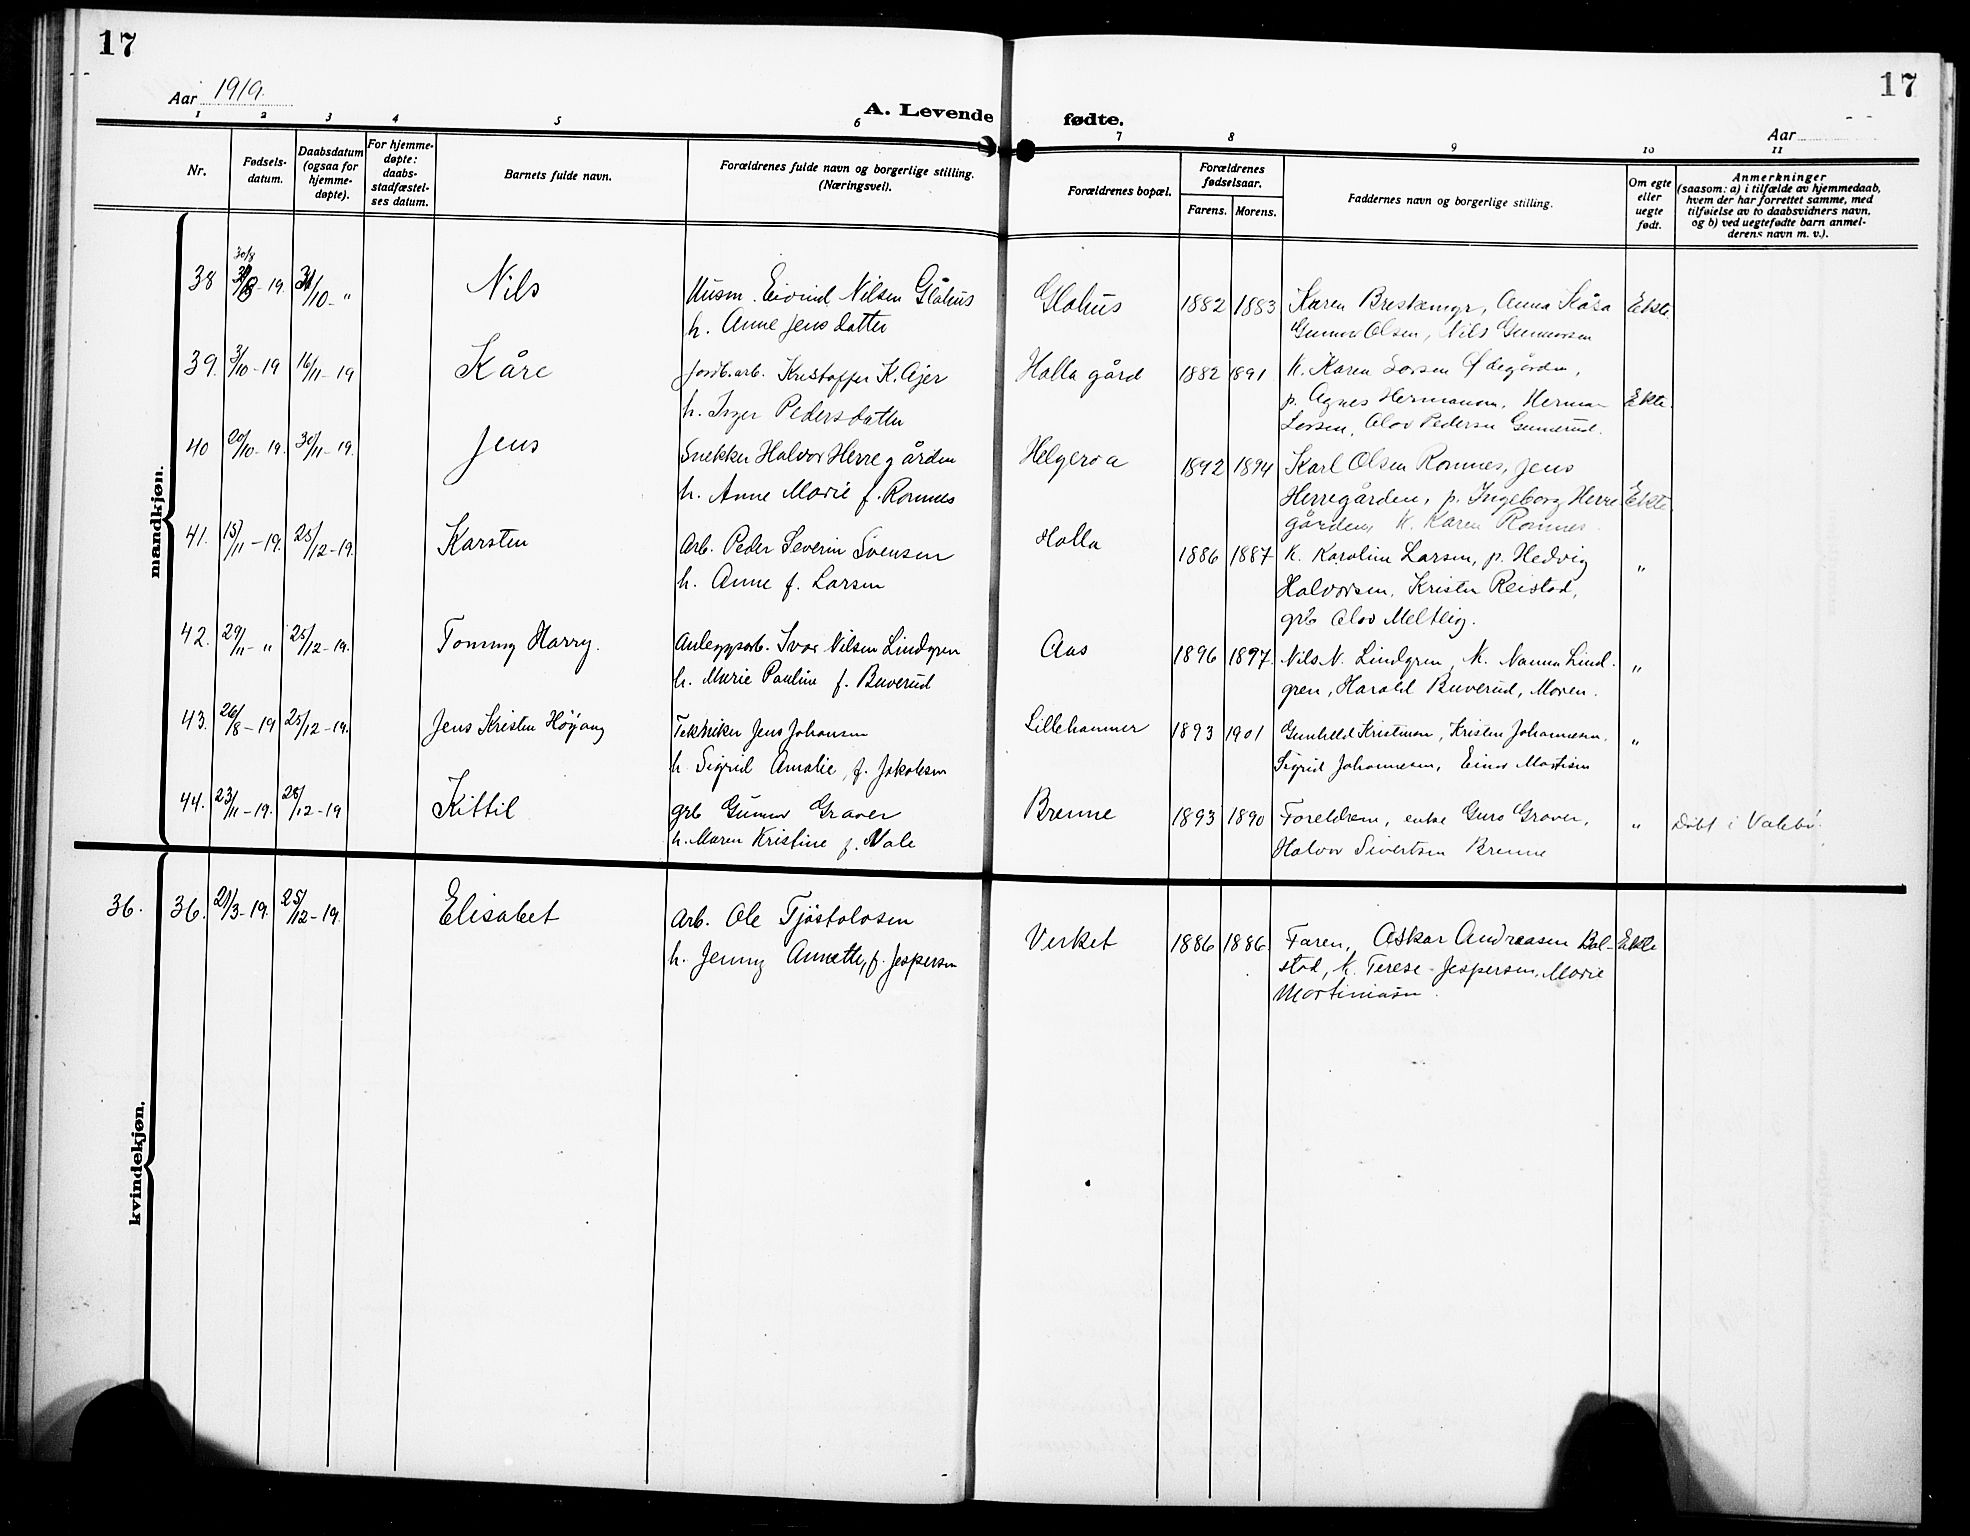 17
17
Aar 1919.
A. Levende fødte.
Aar
1 2 3 4 5 6 7 8 9 10 11
Nr.
Fødsels-
datum.
Daabsdatum
(ogsaa for
hjemme-
døpte).
For hjemme-
døpte:
daabs-
stadfæstel-
ses datum.
Barnets fulde navn.
Forældrenes fulde navn og borgerlige stilling.
(Næringsvei).
Forældrenes bopæl.
Forældrenes
fødselsaar.
Farens. Morens.
Faddernes navn og borgerlige stilling.
Om egte
eller
uegte
født.
Anmerkninger
(saasom: a) i tilfælde av hjemmedaab,
hvem der har forrettet samme, med
tilføielse av to daabsvidners navn,
og b) ved uegtefødte barn anmel-
derens navn m. v.).
mandkjøn.
30/8
38 -19. /10 - " Nils Husm. Eivind Nilsen Glahus Glahus 1882 1883 Karen Breskemyr, Anna Kåsa Ekte.
h. Anne Jensdatter Gunnar Olsen, Nils Gunnarsen
39. 3/10-19 16/11-19 Kåre Jordb.arb. Kristoffer K. Ajer Holla gård 1882 1891 k. Karen Larsen Ødegården,
h. Inger Pedersdatter p. Agnes Hermansen, Herman Ekte.
Larsen, Olav Pedersen Gunnerud.
40 20/10-19. 30/11-19. Jens Snekker Halvor Herregården Helgeroa 1892 1894 Karl Olsen Romnes, Jens
h. Anne Marie f. Romnes Herregården, p. Ingeborg Herre- Ekte
gården, k. Karen Romnes.
41. 15/11-19. 25/12-19. Karsten Arb. Peder Severin Svensen Holla 1886 1887 k. Karoline Larsen, p. Hedvig "
h. Anne f. Larsen Halvorsen, Kristen Reistad,
grb Olav Melteig.
42. 29/11- " 25/12-19. Tommy Harry. Anleggsarb. Ivar Nilsen Lindgren Aas 1896 1897. Nils N. Lindgren, k. Nanna Lind- "
h. Marie Pauline f. Buverud gren, Harald Buverud, Moren.
43. 26/8-19 25/12-19. Jens Kristen Høyang Tekniker Jens Johansen Lillehammer 1893 1901 Gunhild Kristensen, Kristen Johannesen, "
h. Sigrid Amalie, f. Jakobsen Sigrid Johannesen, Einar Martisen
44. 23/11-19. 28/12-19 Kittil grb Gunnar Graver Brenne 1893 1890 Foreldrene, enke Guro Graver, " Døbt i Valebø.
h. Maren Kristine f. Vale Halvor Sivertsen Brenne
kvindekjøn.
36. 36. 21/3-19. 25/12-19. Elisabet Arb. Ole Tjøstolvsen Verket 1886 1886. Faren, Askar Andreasen Bol- Ekte
h. Jenny Annette, f. Jespersen stad, k. Terese Jespersen, Marie
Martiniusen.